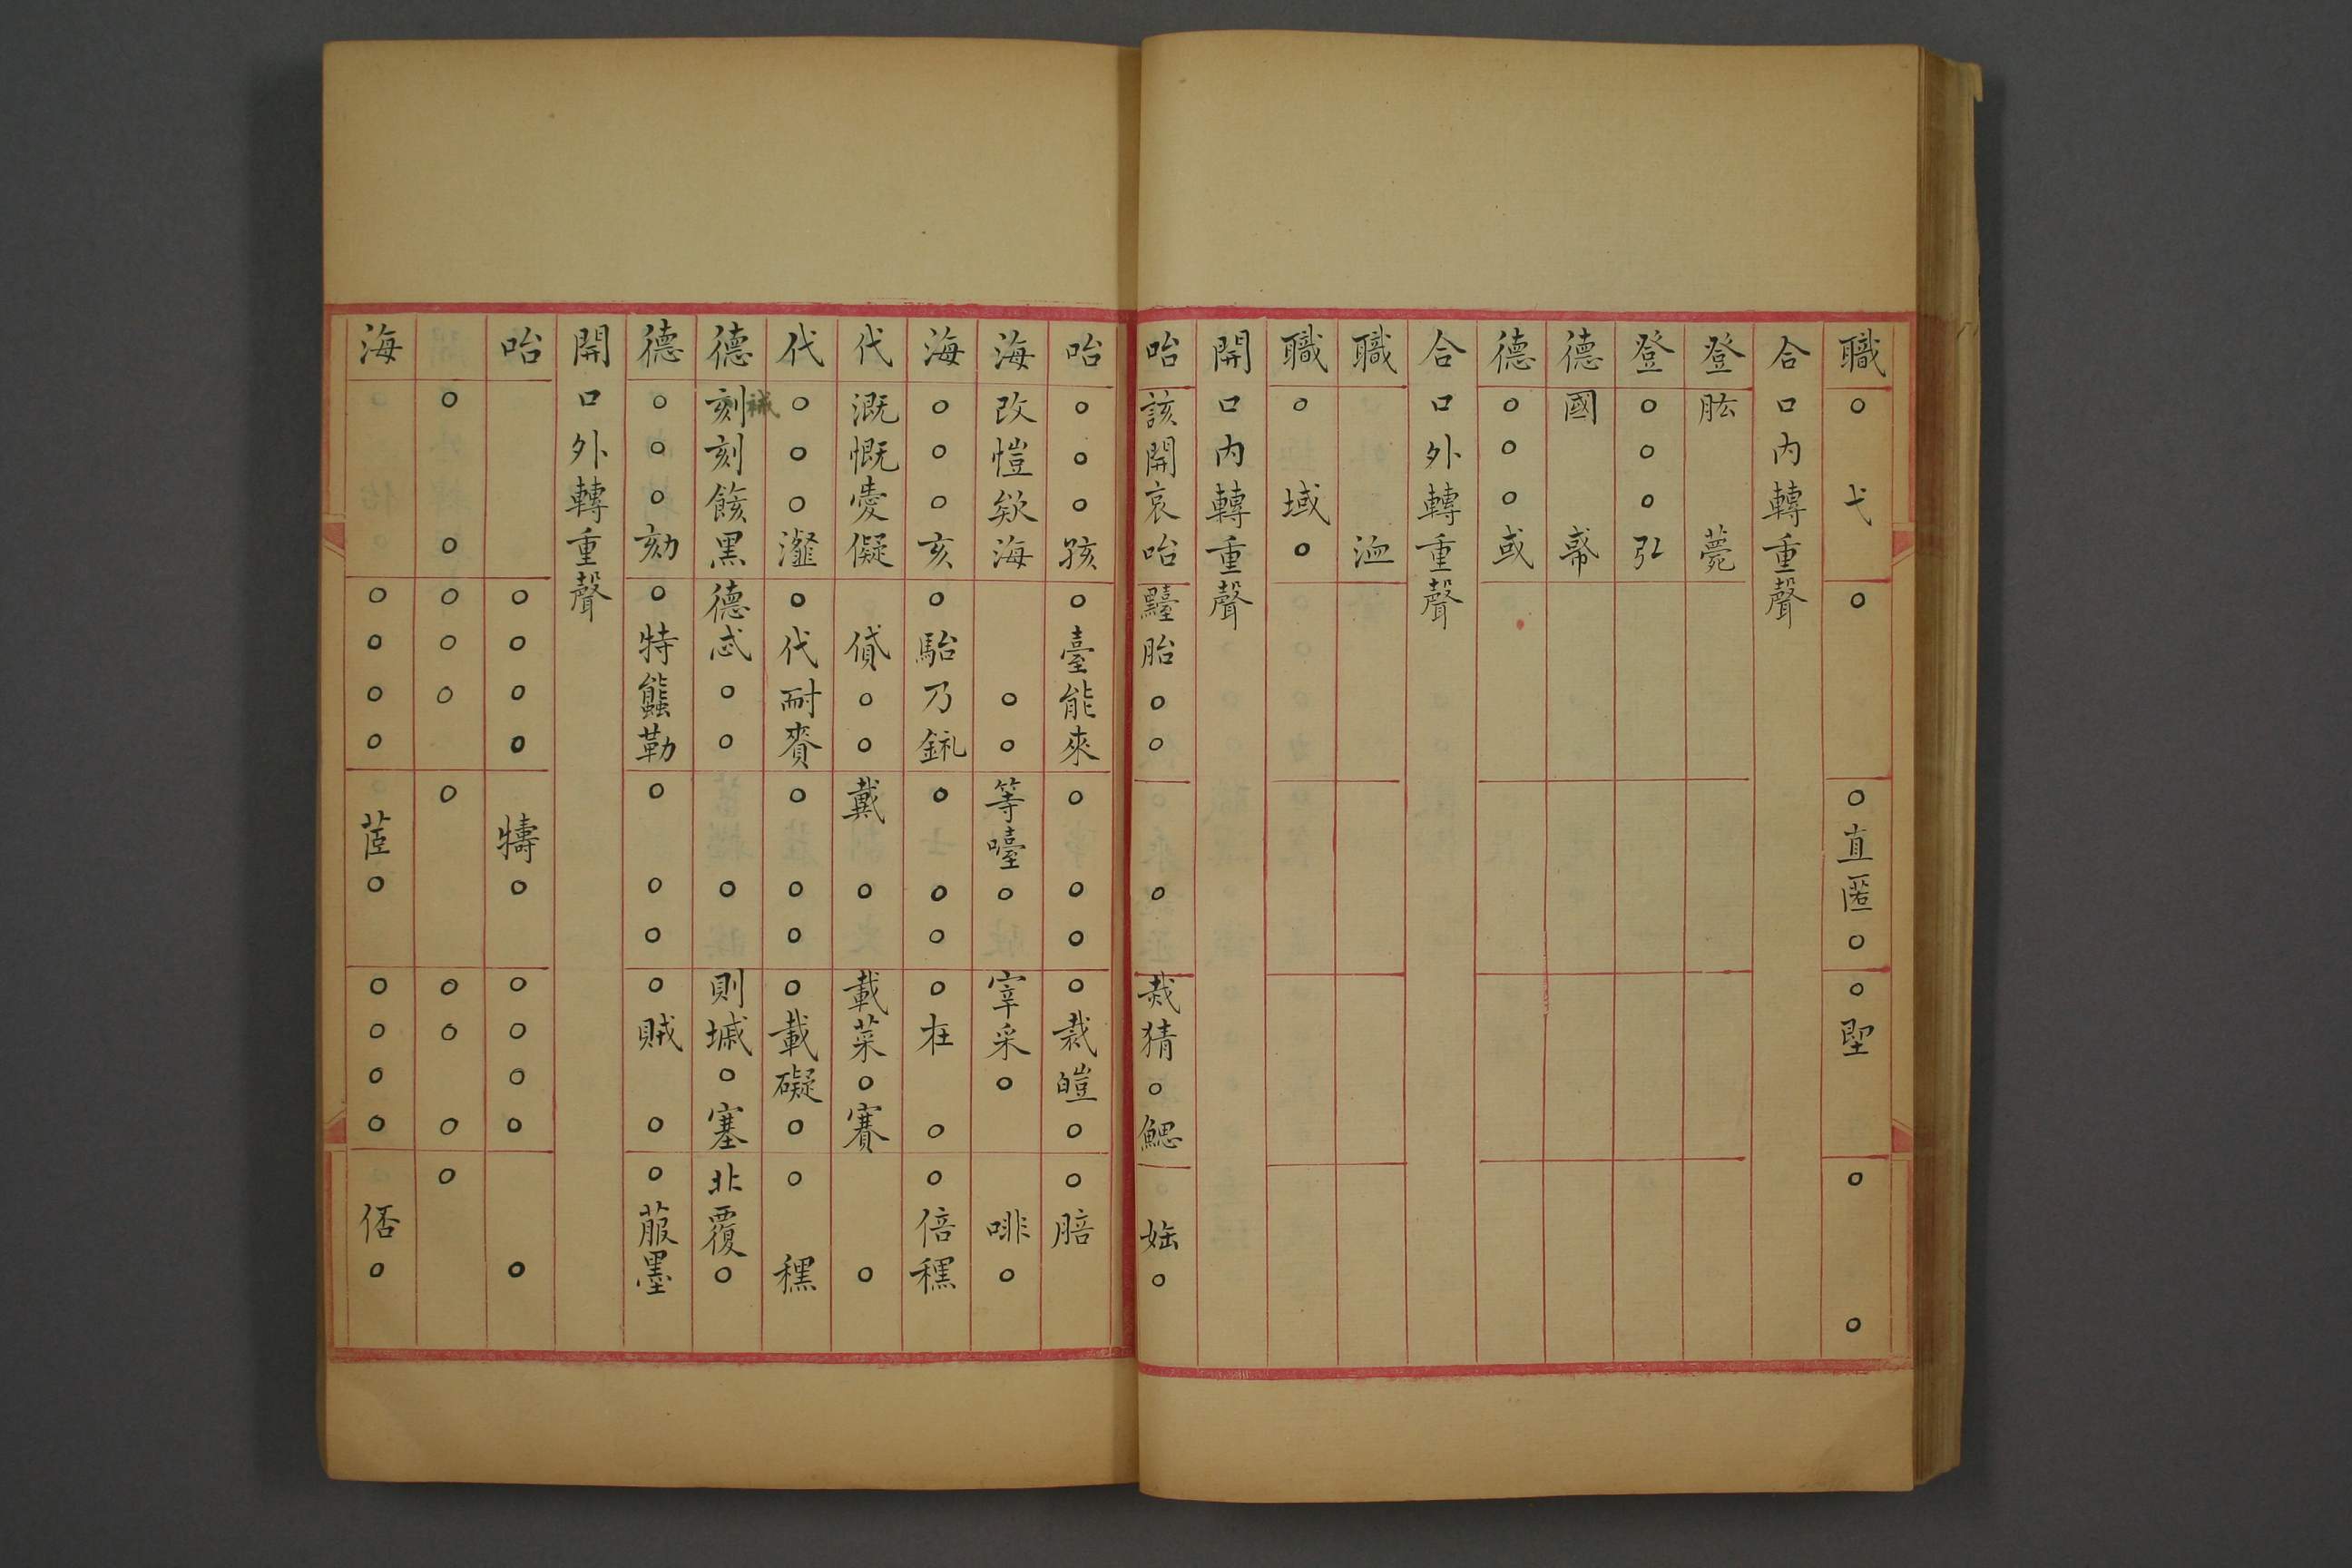 職○弋○○直匿○○聖○○
合口内轉重聲
登肱薨
登○○○弘
德國
德○○○或
合口外轉重聲
職洫
職○域○
開口内轉重聲
咍該開哀咍胎○○○栽猜○鰓○
咍○○○孩○臺能來○○○○裁皚○○賠
海改愷欸海○○等嚏○宰采○啡○
海○○○亥○駘乃○○○○在○○倍穤
代溉慨愛儗貸○○戴○載菜○賽○
代○○○瀣○代耐賚○○○○載礙○○穤
德刻刻餩黑德忒○○○則城○塞北覆○
德○○○劾○特䘅勒○○○○賊○○菔墨
開口外轉重聲
咍○○○○犞○○○○○○
○○○○○○○○○○
海○○○○茞○○○○○俖○